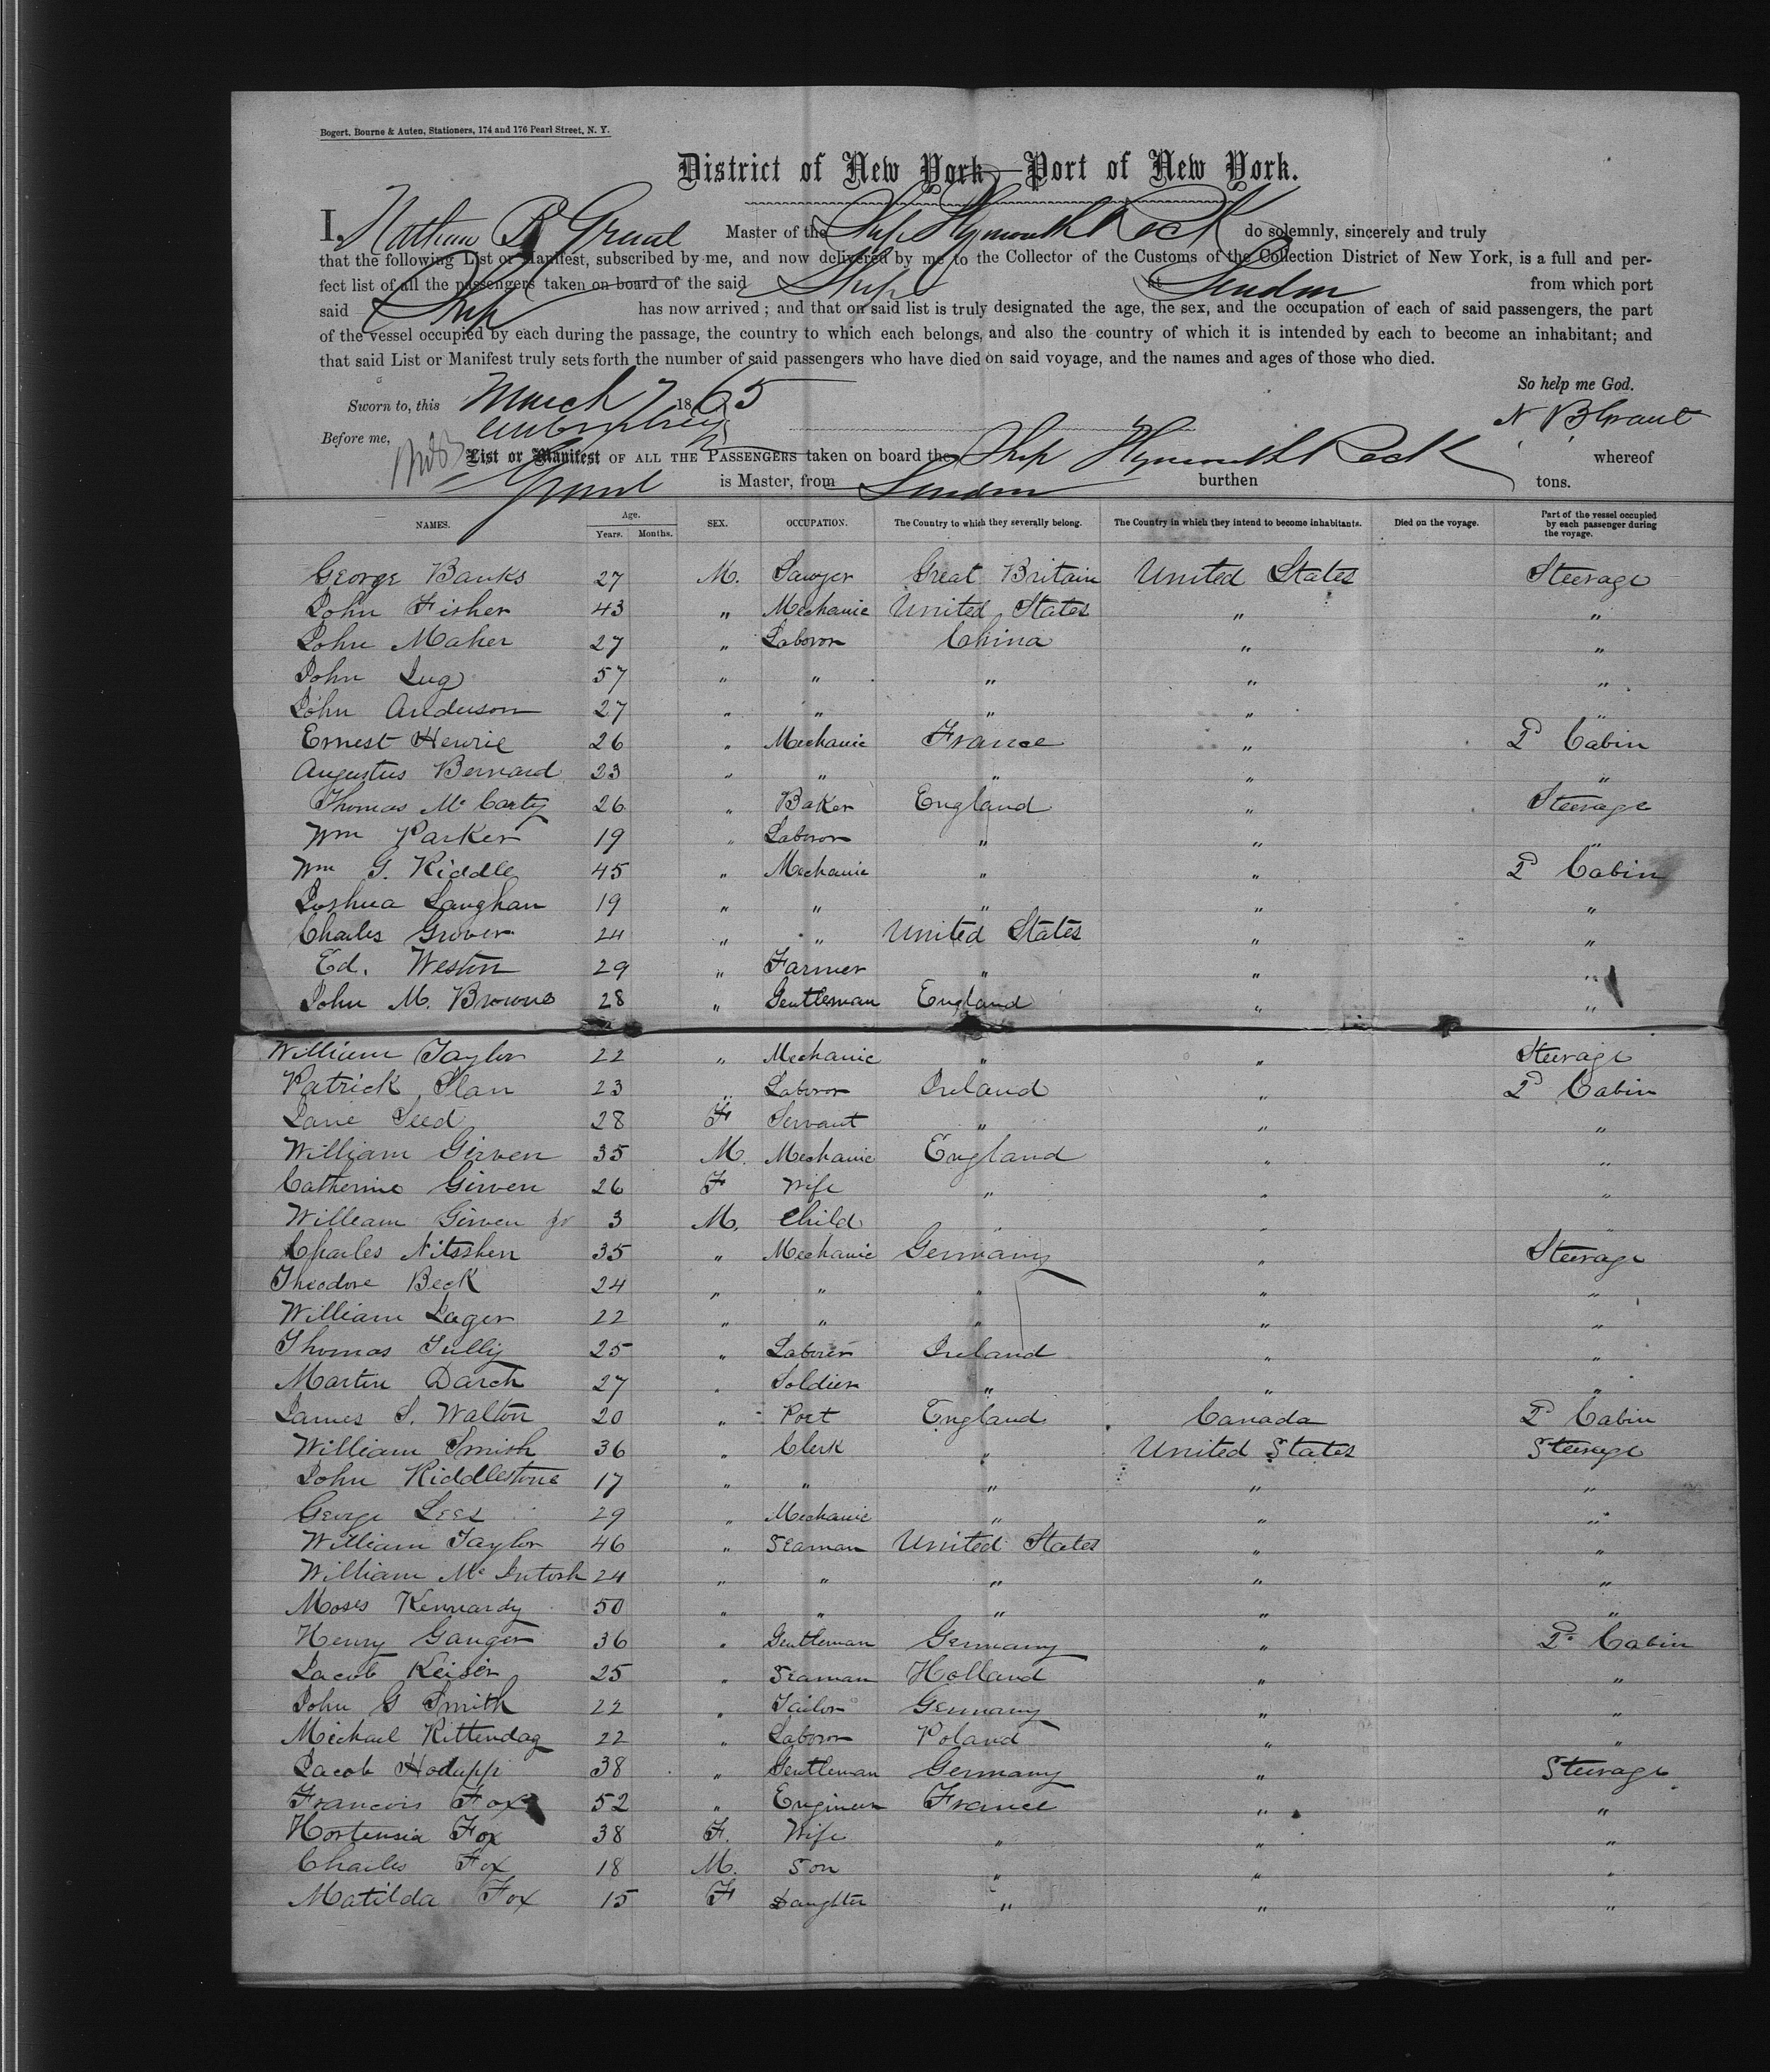 Bogert, Bourne & Auten, Stationers, 174 and 176 Pearl Street, N. Y.
District of New York—Port of New York.
I, Nathan B Grant Master of the Ship Plymouth Rock do solemnly, sincerely and truly
that the following List or Manifest, subscribed by me, and now delivered by me to the Collector of the Customs of the Collection District of New York, is a full and per-
fect list of all the passengers taken on board of the said Ship at London from which port
said Ship has now arrived; and that on said list is truly designated the age, the sex, and the occupation of each of said passengers, the part
of the vessel occupied by each during the passage, the country to which each belongs, and also the country of which it is intended by each to become an inhabitant; and
that said List or Manifest truly sets forth the number of said passengers who have died on said voyage, and the names and ages of those who died.
So help me God.
Sworn to, this March 7 1865
N B Grant
Before me,
List or Manifest OF ALL THE PASSENGERS taken on board the Ship Plymouth Rock whereof
Grant is Master, from London burthen tons.
NAMES. Age. Years. Months. SEX. OCCUPATION. The Country to which they severally belong. The Country in which they intend to become inhabitants. Died on the voyage. Part of the vessel occupied by each passenger during the voyage.
George Banks 27 M. Sawyer Great Britain United States Steerage
John Fisher 43 " Mechanic United States " "
John Maher 27 " Laboror China " "
John Lug 57 " " " " "
John Anderson 27 " " " " "
Ernest Henrie 26 " Mechanic France " 2d Cabin
Augustus Bernard 23 " " " " "
Thomas McCarty 26 " Baker England " Steerage
Wm Parker 19 " Laboror " " "
Wm G. Riddle 45 " Mechanic " " 2d Cabin
Joshua Langhan 19 " " " " "
Charles Grover 24 " " United States " "
Ed. Weston 29 " Farmer " " "
John M. Browne 28 " Gentleman England " "
William Taylor 22 " Mechanic " " Steerage
Patrick Slan 23 " Laboror Ireland " 2d Cabin
Jane Seed 28 F Servant " " "
William Girven 35 M. Mechanic England " "
Catherine Girven 26 F Wife " " "
William Girven Jr 3 M. Child " " "
Charles Nitsshen 35 " Mechanic Germany " Steerage
Theodore Beck 24 " " " " "
William Lager 22 " " " " "
Thomas Tully 25 " Laborer Ireland " "
Martin Darch 27 " Soldier " " "
James S. Walton 20 " Poet England Canada 2d Cabin
William Smish 36 " Clerk " United States Steerage
John Riddlestone 17 " " " " "
George Lees 29 " Mechanic " " "
William Taylor 46 " Seaman United States " "
William McIntosh 24 " " " " "
Moses Kennardy 50 " " " " "
Henry Ganger 36 " Gentleman Germany " 2d Cabin
Jacob Keiser 25 " Seaman Holland " "
John G Smith 22 " Tailor Germany " "
Michael Rittendag 22 " Laboror Poland " "
Jacob Hoduppi 38 " Gentleman Germany " Steerage
Francois Fox 52 " Engineer France " "
Hortensia Fox 38 F. Wife " " "
Charles Fox 18 M. Son " " "
Matilda Fox 15 F Daughter " " "